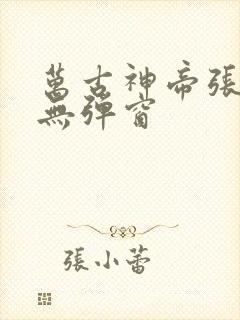 萬古神帝張
無彈窗
張小蕾